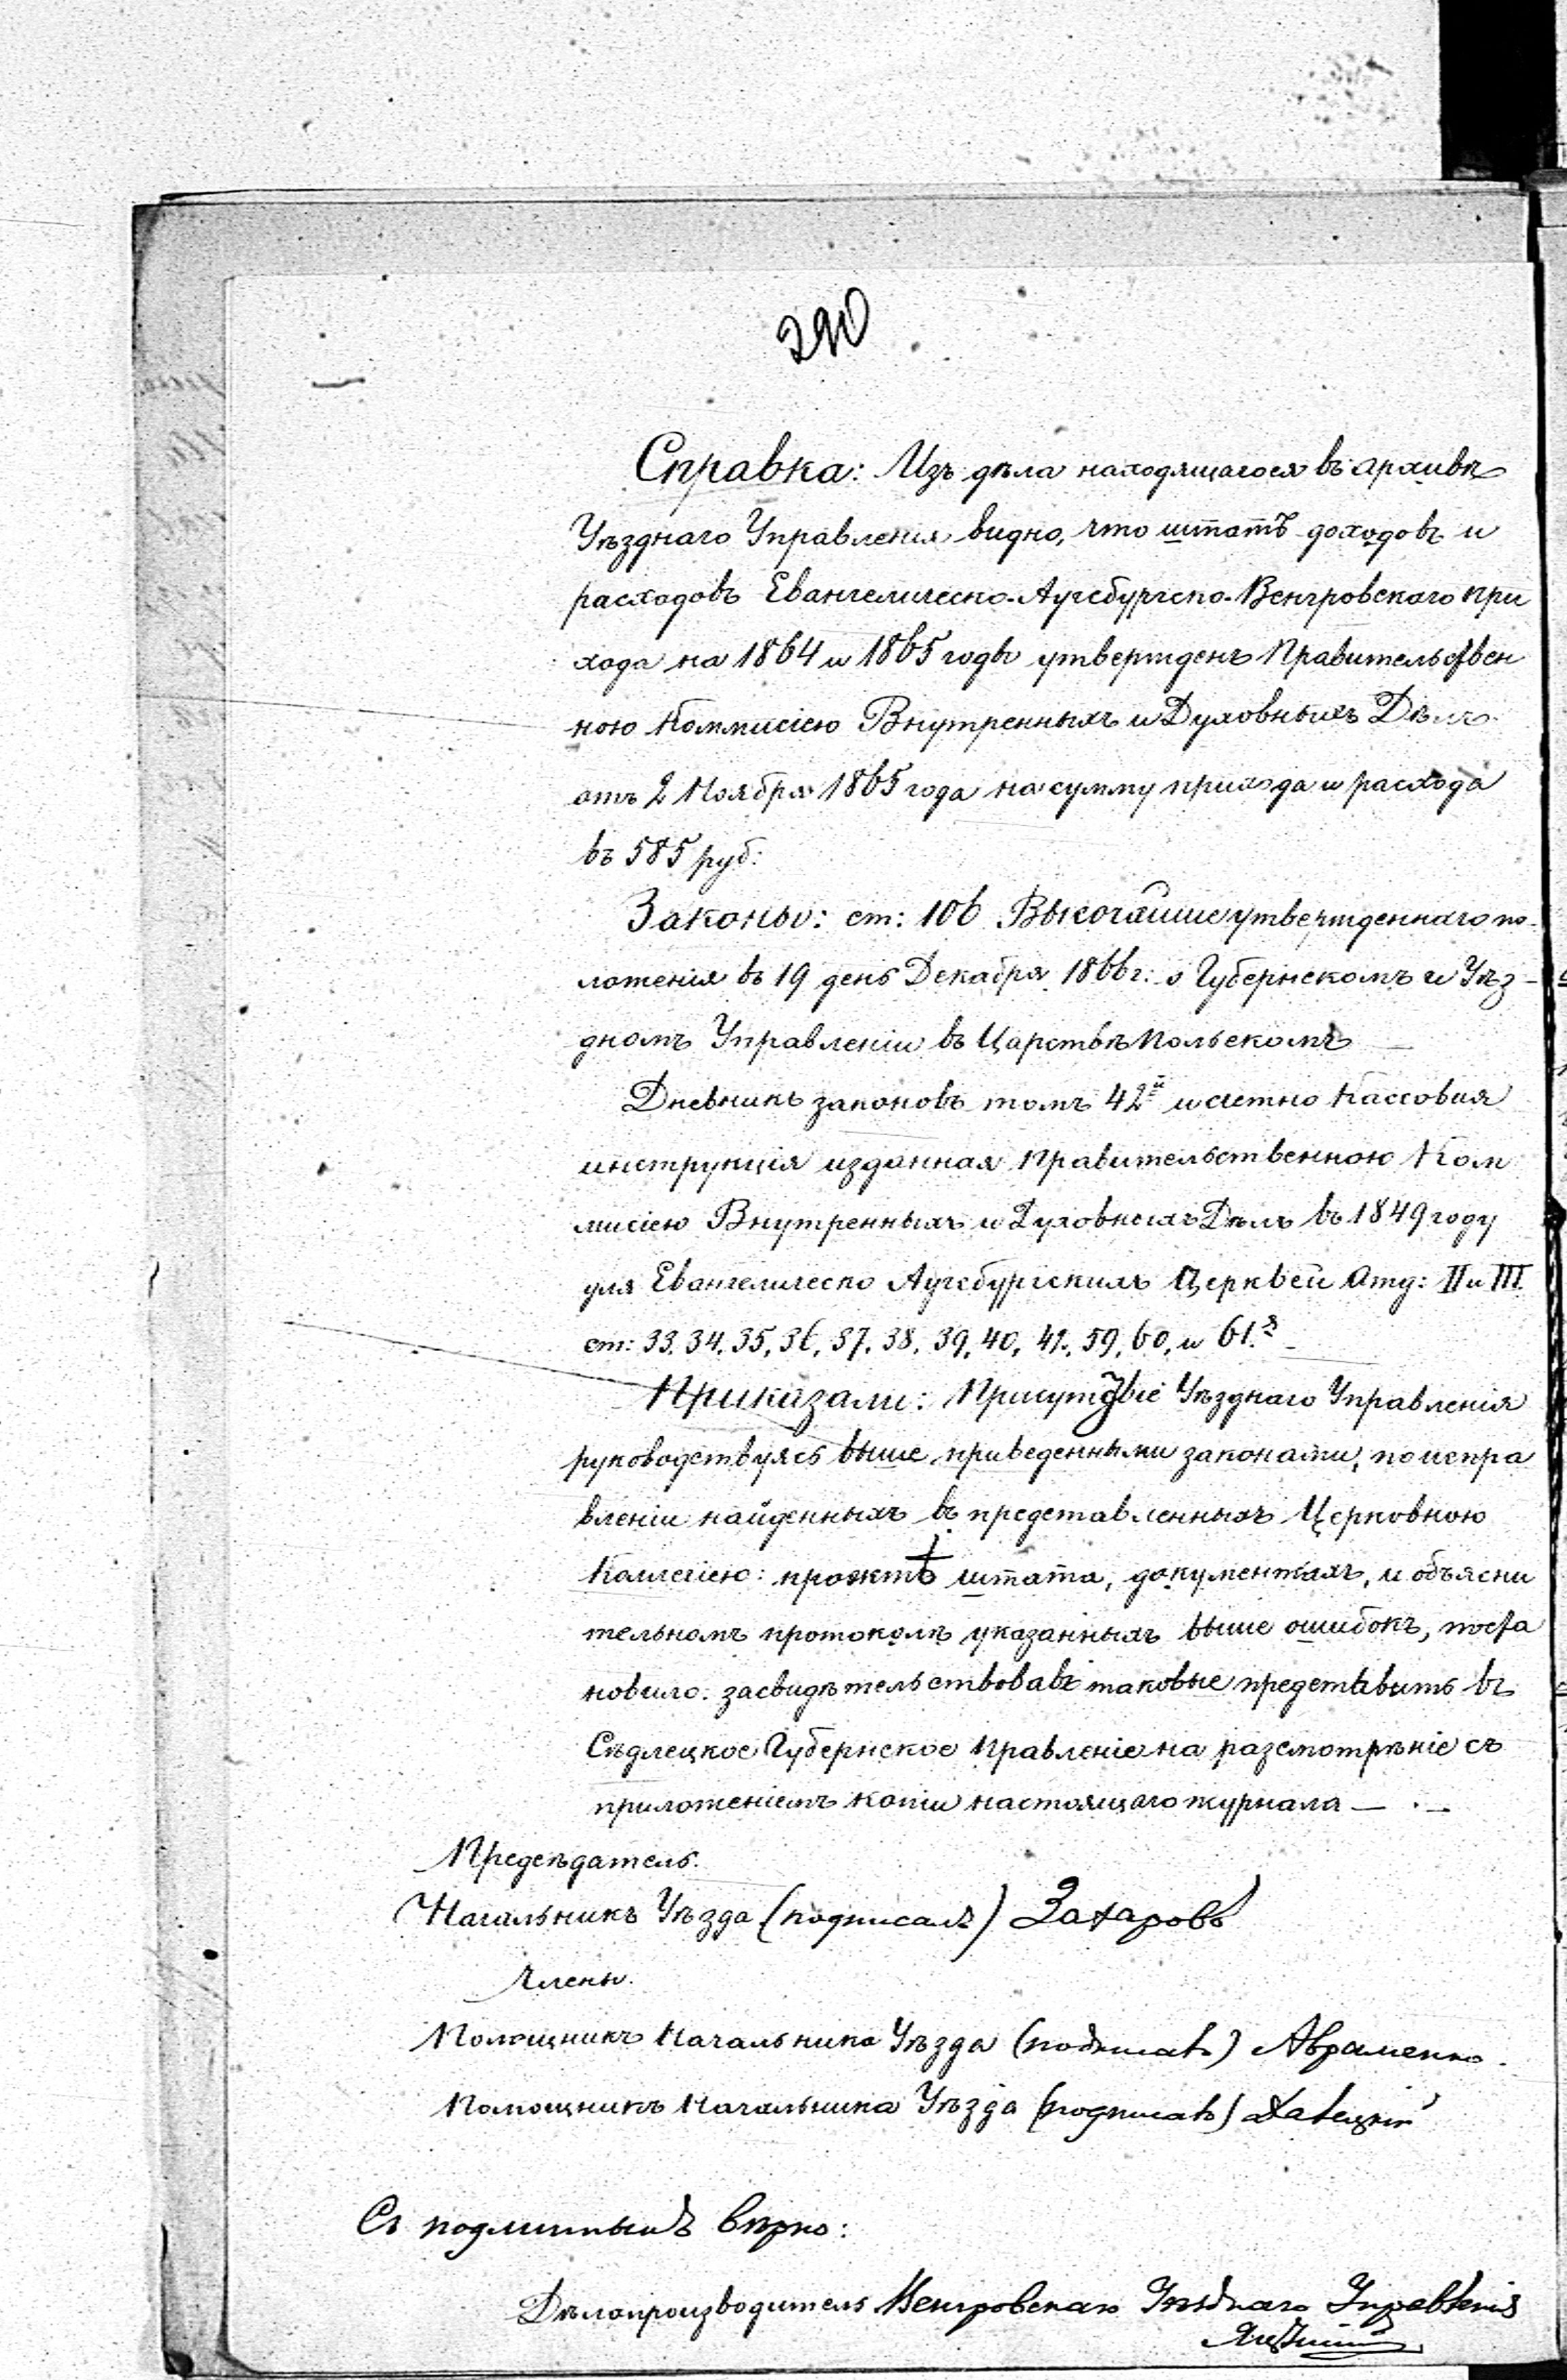 290
Справка: Изъ дѣла находящагося въ архивѣ
Уѣзднаго Управленія видно, что штатъ доходовъ и
расходовъ Евангелическо-Аугсбургско-Венгровскаго при
хода на 1864 и 1865 годы утвержденъ Правительствен
ною Коммисіею Внутренныхъ и Духовныхъ Дѣлъ
отъ 2 Ноября 1865 года на сумму прихода и расхода
въ 585 руб:
Законы: ст: 106 Высочайше утвержденнаго по-
ложенія въ 19 день Декабря 1866 г: о Губернскомъ и Уѣз-
дномъ Управленіи въ Царствѣ Польскомъ —
Дневникъ законовъ томъ 42й и счетно Кассовая
инструкція изданная Правительственною Ком
мисіею Внутренныхъ и Духовныхъ Дѣлъ въ 1849 году
для Евангелическо Аугсбургскихъ Церквей Отд: II и III
ст: 33, 34, 35, 36, 37, 38, 39, 40, 41, 59, 60, и 61.я —
Приказали: Присутствіе Уѣзднаго Управленія
руководствуясь выше приведенными законами, по испра
вленіи найденныхъ въ представленныхъ Церковною
Коллегіею: проэктѣ штата, документахъ, и объясни
тельномъ протоколѣ указанныхъ выше ошибокъ, поста
новило: засвидѣтельствовавъ таковые представить въ
Сѣдлецкое Губернское Правленіе на разсмотрѣніе съ
приложеніемъ копіи настоящаго журнала — . —
Предсѣдатель.
Начальникъ Уѣзда (подписалъ) Захаровъ
Члены.
Помощникъ Начальника Уѣзда (подписалъ) Авраменко.
Помощникъ Начальника Уѣзда (подписалъ)
Съ подлиннымъ вѣрно:
Дѣлопроизводитель Венгровскаго Уѣзднаго Управленія